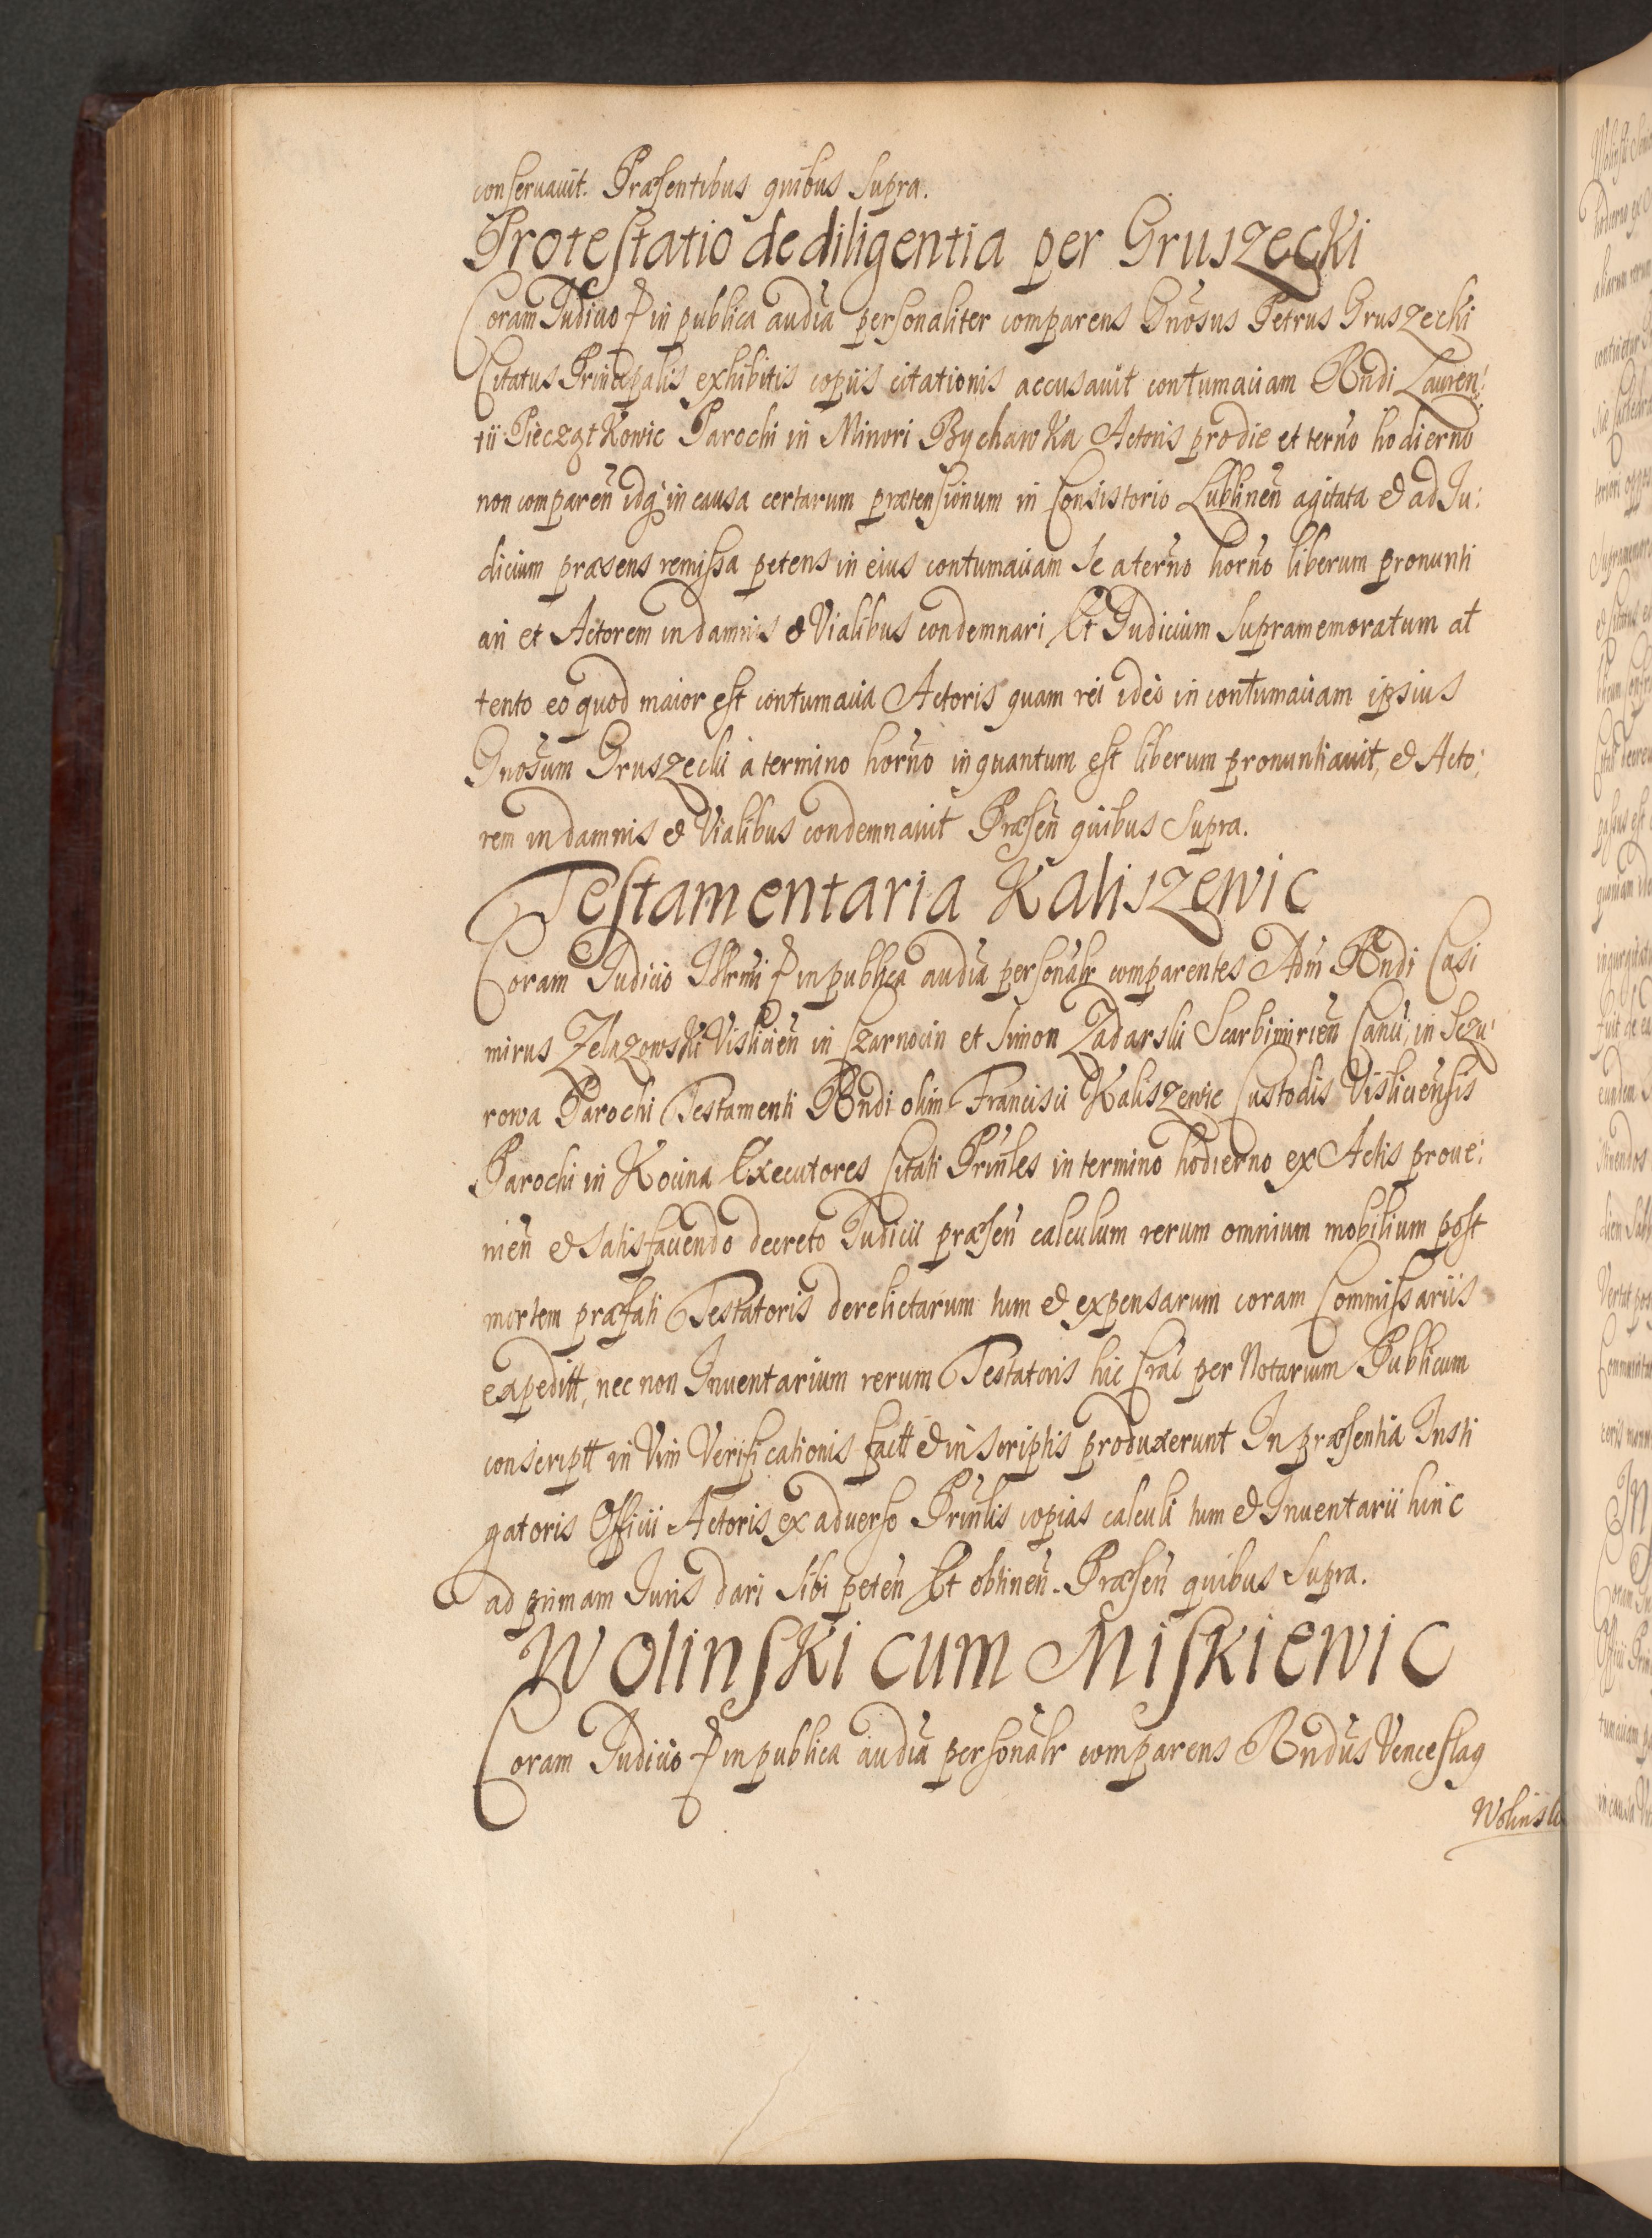 conseruauit. Præsentibus quibus supra.
Protestatio de diligentia per Gruszecki
Coram Judicio P in publica audīa personaliter comparens Gnōsus Petrus Gruszecki
Citatus Principalis exhibitis copiis citationis accusauit contumaciam Rndi Lauren:
tii Pieczątkowic Parochi in Minori Bychawka Actoris pro die et terno hodierno
non comparen̄ idq in causa certarum prætensionum in Consistorio Lublinen̄ agitata & ad Ju:
dicium præsens remissa petens in eius contumaciam se a terno horno liberum pronunti
ari et Actorem in damnis & Vialibus condemnari Et Judicium supramemoratum at
tento eo quod maior est contumacia Actoris quam rei ideo in contumaciam ipsius
Gnosum Gruszecki a termino horno in quantum est liberum pronuntiauit, & Acto:
rem in damnis & Vialibus condemnauit Præsen̄ quibus supra.
Testamentaria Kaliszewic
Coram Judicio Illrmi P in publica audīa personalr comparentes Adm Rndi Casi
mirus Zelazowski Vislicien̄ in Czarnocin et Simon Zadarski Scarbimirien̄ Canci, in Szczu
rowa Parochi Testamenti Rndi olim Francisci Kaliszewic Custodis Visliciensis
Parochi in Kocina Executores Citati Prinles in termino hodierno ex Actis proue:
nien̄ & satisfaciendo decreto Judicii præsen̄ calculum rerum omnium mobilium post
mortem præfati Testatoris derelictarum tum & expensarum coram Commissariis
expeditt, nec non Inuentarium rerum Testatoris hic Crac per Notarium Publicum
conscriptt in Vim Verificationis factt & in scriptis produxerunt In præsentia Insti
gatoris Officii Actoris ex aduerso Prinlis copias calculi tum & Inuentarii hinc
ad primam Juris dari sibi peten̄ Et obtinen̄. Præsen̄ quibus supra.
Wolinski cum Miskiewic
Coram Judicio P in publica audīa personalr comparens Rndus Venceslaq
Wolinski